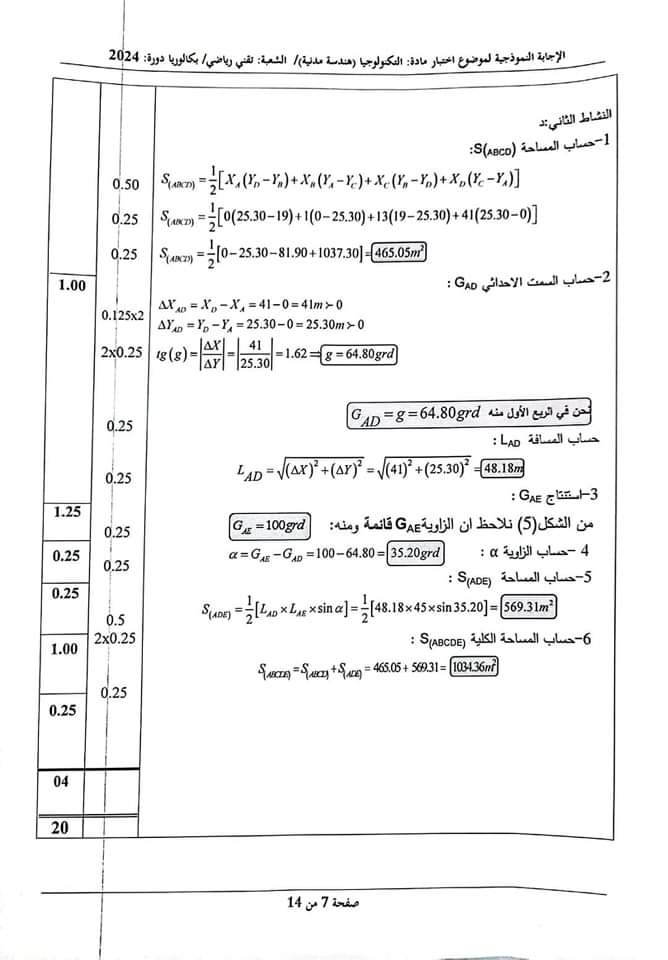 الإجابة النموذجية لموضوع اختبار مادة: التكنولوجيا (هندسة مدنية)/ الشعبة: تقني رياضي/ بكالوريا دورة: 2024
النشاط الثاني:د
1-حساب المساحة S(ABCD):
S(ABCD) = 1/2[X_A(Y_D − Y_B) + X_B(Y_A − Y_C) + X_C(Y_B − Y_D) + X_D(Y_C − Y_A)] 0.50
S(ABCD) = 1/2[0(25.30−19)+1(0−25.30)+13(19−25.30)+41(25.30−0)] 0.25
S(ABCD) = 1/2[0−25.30−81.90+1037.30] = 465.05m² 0.25
1.00
2-حساب السمت الاحداثي G_AD :
ΔX_AD = X_D − X_A = 41−0 = 41m ≻ 0 0.125x2
ΔY_AD = Y_D − Y_A = 25.30−0 = 25.30m ≻ 0
tg(g) = |ΔX/ΔY| = |41/25.30| = 1.62 ⇒ g = 64.80grd 2x0.25
نحن في الربع الأول منه G_AD = g = 64.80grd 0.25
حساب المسافة L_AD :
L_AD = √((ΔX)² + (ΔY)²) = √((41)² + (25.30)²) = 48.18m 0.25
3-استنتاج G_AE :
1.25
من الشكل(5) نلاحظ ان الزاوية G_AE قائمة ومنه: G_AE = 100grd 0.25
4 -حساب الزاوية α : α = G_AE − G_AD = 100−64.80 = 35.20grd 0.25 0.25
5-حساب المساحة S(ADE) :
0.25
S(ADE) = 1/2[L_AD × L_AE × sin α] = 1/2[48.18×45×sin 35.20] = 569.31m² 0.5
2x0.25
6-حساب المساحة الكلية S(ABCDE) :
1.00
S(ABCDE) = S(ABCD) + S(ADE) = 465.05 + 569.31 = 1034.36m² 0.25
0.25
04
20
صفحة 7 من 14